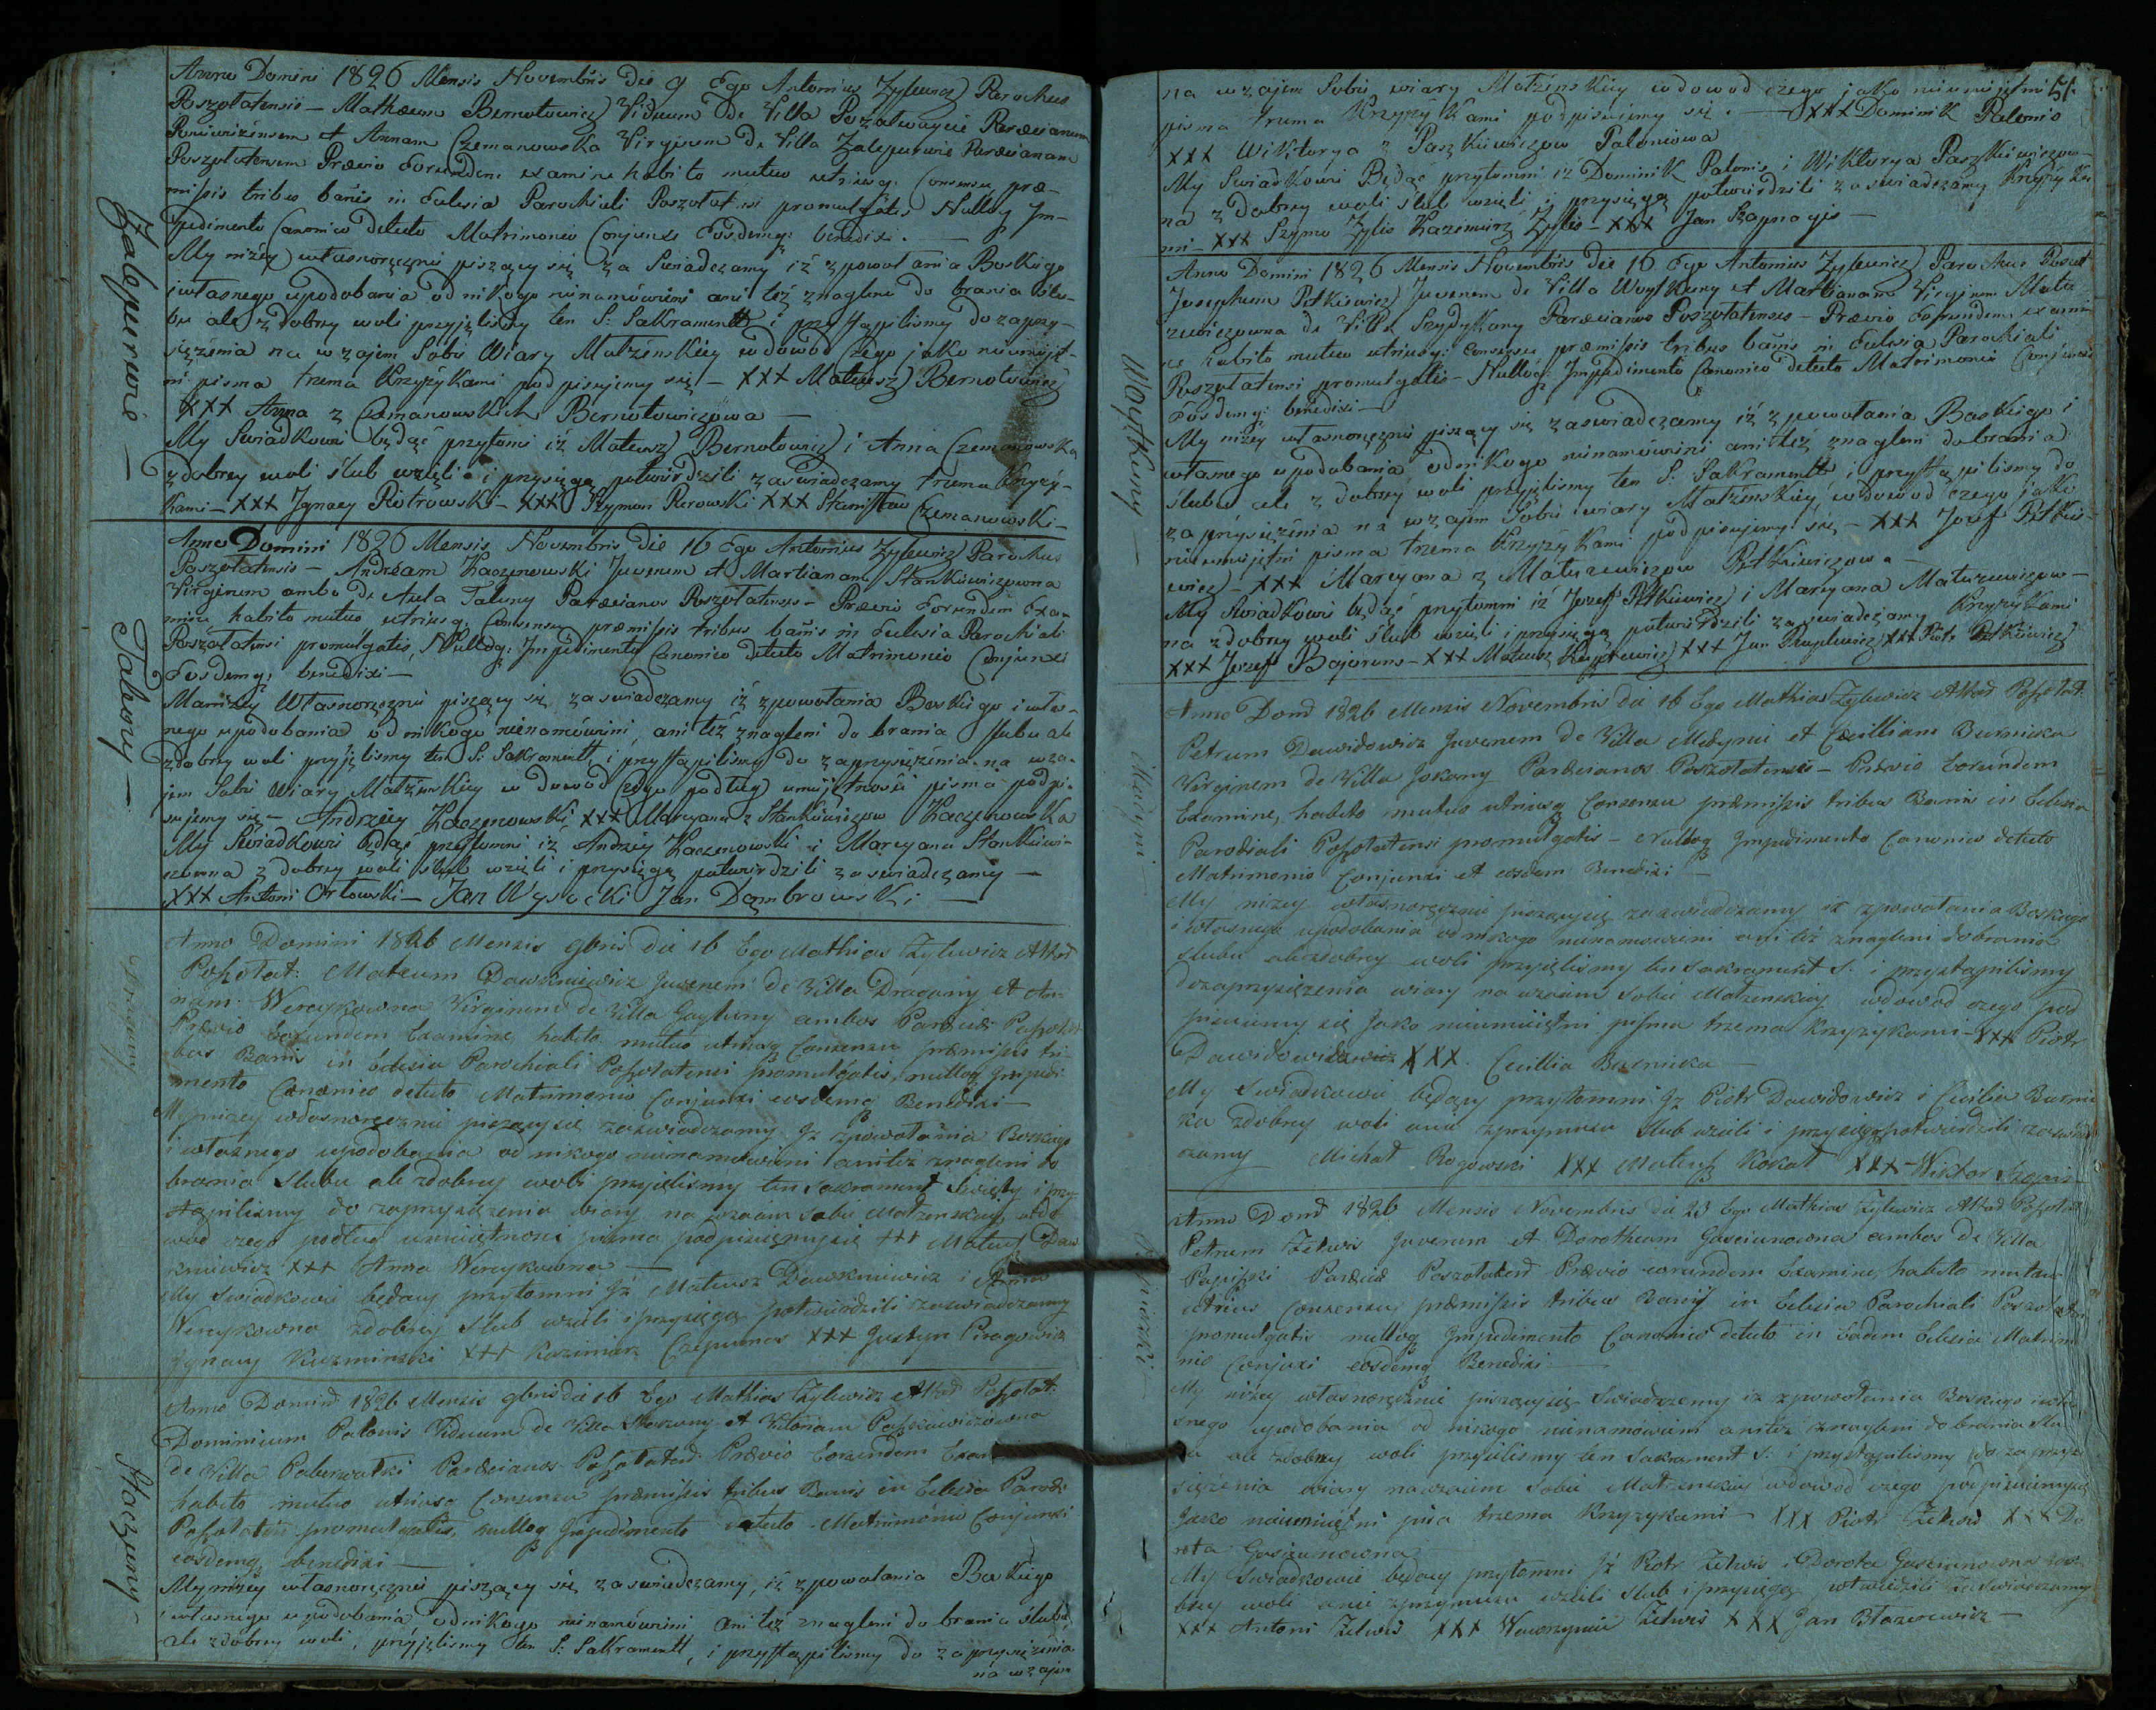 Zalepurwie —
Anno Domini 1826 Mensis Novembris Die 9 Ego Antonius Zylewicz Parochus
Poszołatensis — Mathæum Bernotowicz Viduum De Villa Pozalwaycie Paræcianum
et Annam Czemanowska Virginem De Villa Zalepurwie Paræcianam
Poszołatensem Prævio Eorundem examine habito mutuo utriusq: Consensu præ-
missis tribus banis in Eclesia Parochiali Poszołatensi promulgatis Nulloq Im-
pedimento Canonico detecto Matrimonio Conjunxi Eosdemq: benedixi. —
My niżey własnoręcznie piszący się za Swiadczamy iż z powołania Boskiego
i własnego upodobania od nikogo nienamówieni ani też znagleni do brania ślu-
bu ale z dobrey woli przyjęlismy ten S: Sakramentt i przystąpilismy do zaprzy-
siężenia na wzajem Sobie Wiary Małżeńskiey w dowód czego jako nieumięt-
ni pisma trzema Krzyżykami podpisujemy się — XXX Mateusz Bernotowicz
XXX Anna z Czemanowskich Bernotowiczowa —
My Swiadkowie będąc przytomi iż Mateusz Bernotowicz i Anna Czemanowska
z dobrey woli ślub wzięli i przysięgą potwierdzili zaswiadczamy trzema Krzyży-
kami — XXX Ignacy Piotrowski — XXX Szymon Rerowski XXX Stanisław Czemanowski —
Talony —
Anno Domini 1826 Mensis Novembris Die 16 Ego Antonius Zylewicz Parochus
Poszołatensis — Andream Kaczenowski Juvenem et Martianam Stankiewiczowna
Virginem ambo De Aula Talony Paræcianos Poszołatenses — Prævio Eorundem Exa-
mine habito mutuo utriusq: Consensu præmissis tribus banis in Eclesia Parochiali
Poszołatensi promulgatis, Nulloq: Impedimento Canonico detecto Matrimonio Conjunxi
Eosdemq: benedixi —
My niżey Własnoręcznie piszący się zaswiadczamy iż z powołania Boskiego i włas-
nego upodobania od nikogo nienamówieni, ani też znagleni do brania slubu ale
z dobrey woli przyjęlismy ten S: Sakramentt i przystąpilismy do zaprzysiężenia na wza-
jem Sobie Wiary Małżenskiey w dowód Czego podług umiejtnosci pisma podpi-
sujemy się — Andrzéy Kaczenowski, XXX Maryanna z Stankiewiczow Kaczenowska
My Swiadkowie będąc przytomni iż Andrzéy Kaczenowski i Maryana Stankiewi-
czowna z dobrey woli slub wzięli i przysięgą potwierdzili zaswiadczamy —
XXX Antoni Orłowski — Jan Wysocki Jan Dąmbrowski —
Draguny
Anno Domini 1826 Mensis 9bris die 16 Ego Mathias Zylewicz
Poszołat: Mateum Dawkniewicz Juvenem de Villa Draguny et An-
nam Wercykowna Virginem de Villa Gayluny ambos
Prævio Eorundem Examine habito mutuo utriusq Consensu præmissis tri-
bus Banis in Eclesia Parochiali Poszołatensi promulgatis, nulloq Impedi-
mento Canonico detecto Matrimonio Conjunxi eosdemq Benedixi —
My niżey własnoręcznie piszący się zaswiadczamy Iż z powołania Boskiego
i własnego upodobania od nikogo nienamowieni ani też znagleni do
brania slubu ale zdobrey woli przyięlismy ten Sakrament Swięty i przy-
stąpilismy do zaprzysiężenia wiary na wzaiem sobie Małżenskiey w do
wod czego podług umieiętnosci pisma podpisuiemy się XXX Mateusz Daw
kniewicz XXX Anna Wercykowna —
My Swiadkowie będący przytomni Iż Mateusz Dawkniewicz i Anna
Wercykowna zdobrey slub wzieli i przysięgą potwierdzili zaswiadczamy
Ignacy Kuzminski XXX Kazimierz XXX Justyn Pirogowicz
Staczuny
Anno Domini 1826 Mensis 9bris die 16 Ego Mathias Zylewicz
Dominicum Palonis Viduum de Villa Staczuny et Victoriam Paszkiewiczowna
de Villa Paræcianos Prævio Eorundem Exam
habito mutuo utriusq Consensu præmissis tribus Banis in Eclesia Paroch
promulgatis, nulloq Impedimento detecto Matrimonio Conjunxi
eosdemq benedixi —
My niżey własnoręcznie piszący się zaswiadczamy, iż z powołania Boskiego
i własnego upodobania od nikogo nienamówieni ani też znagleni do brania ślubu,
ale z dobrey woli, przyjęlismy ten S: Sakramentt, i przystąpilismy do zaprzysiężenia
na wzajem
51.
na wzajem Sobie wiary Małżenskiey w dowod czego jako nieumiejętni
pisma trzema Krzyżykami podpisuiemy się. — XXX Dominik Palonis
XXX Wiktorya z Paszkiewiczow Paloniowa
My Swiadkowie Będąc przytomni iż Dominik Palonis i Wiktorya Paszkiewiczow-
na z dobrey woli ślub wzięli i przysięgą potwierdzili zaswiadczamy Krzyżyka
mi — XXX Szymo Zylis Kazimierz Zylis — XXX Jan Szapnagis —
Woytkuny —
Anno Domini 1826 Mensis Novembris die 16 Ego Antonius Zylewicz Parochus
Josephum Petkiewicz Juvenem de Villa Woytkuny et Martianam Virginem Matu
zewiczowna de Villa Szydykany Paræcianos Poszołatenses — Prævio Eorundem exami-
ne habito mutuo utriusq: Consensu præmissis tribus banis in Eclesia Parochiali
Poszołatensi promulgatis — Nulloq: Impedimento Canonico detecto Matrimonio Conjunxi
Eosdemq: benedixi —
My niżey własnoręcznie piszący się zaswiadczamy iż z powołania Boskiego i
własnego upodobania od nikogo nienamówieni ani też znagleni do brania
ślubu ale z dobrey woli przyjęlismy ten S: Sakramentt i przystąpilismy do
zaprzysiężenia na wzajem Sobie wiary Małżenskiey w dowod czego jako
nieumiejętni pisma trzema Krzyżykami podpisujemy się — XXX Jozef Petkie-
wicz — XXX Maryana z Matuzewiczow Petkiewiczowa —
My Swiadkowie będąc przytomni iż Jozef Petkiewicz i Maryana Matuzewiczow-
na z dobrey woli ślub wzięli i przysięgą potwierdzili zaswiadczamy Krzyżykami
XXX Jozef Bajoruns — XXX Mateusz XXX Jan XXX Piotr Petkiewicz
Medyni —
Anno Dom 1826 Mensis Novembris die 16 Ego Mathias Zylewicz
Petrum Dawidowicz Juvenem de Villa Medynie et Cæcilliam Burnicka
Virginem de Villa Jokany Paræcianos Poszołatenses — Prævio Eorundem
Examine, habito mutuo utriusq Consensu præmissis tribus Banis in Eclesia
Parochiali Poszołatensi promulgatis — Nulloq Impedimento Canonico detecto
Matrimonio Conjunxi et eosdem Benedixi —
My niżey własnoręcznie piszący się zaswiadczamy iż z powołania Boskiego
i własnego upodobania od nikogo nienamowieni ani też znagleni do brania
slubu ale zdobrey woli przyięlismy ten Sakrament S. i przystąpilismy
do zaprzysiężenia wiary na wzaiem sobie Małżenskiey w dowod czego pod
pisuiemy się Jako nieumieiętni pisma trzema Krzyżykami — XXX Piotr
XXX. Cecillia Burnicka —
My Swiadkowie będący przytomni Iż Piotr Dawidowicz i Cecilia Burnic
ka zdobrey woli anie zprzymusu slub wzieli i przysięgą potwierdzili zaswiad
czamy Michał Rogowski XXX Mateusz Kokat XXX — Wiktor
Anno Dom 1826 Mensis Novembris die 23 Ego Mathias Zylewicz
Petrum Zelwis Juvenem et Dorotheam Gasciunowna ambos de Villa
Prævio eorundem Examine habito mutuo
utrius Consensu præmissis tribus Banis in Eclesia Parochiali
promulgatis nulloq Impedimento Canonico detecto in Eadem Eclesia Matrimo
nio Conjuxi eosdemq Benedixi —
My niżey własnoręcznie piszący się Swiadczemy iż z powołania Boskiego i wła
snego upodobania od nikogo nienamowieni ani też znagleni do brania slu
bu ale zdobrey woli przyielismy ten Sakrament S: i przystąpilismy do zaprzy
siężenia wiary na wzaiem Sobie Małżenskiey w dowod czego podpisuiemy się
Jako nieumieiętni trzema Krzyżykami — XXX Piotr Zelwis XXX Do
rota Gasciunowna
My Swiadkowie będący przytomni Iż Piotr Zelwis i Dorota Gasciunowna zdo
brey woli anie zprzymusu wzieli slub i przysięgą utwierdzili zaswiadczamy
XXX Antoni Zelwis XXX Wawrzyniec Zelwis XXX Jan Błazewicz —